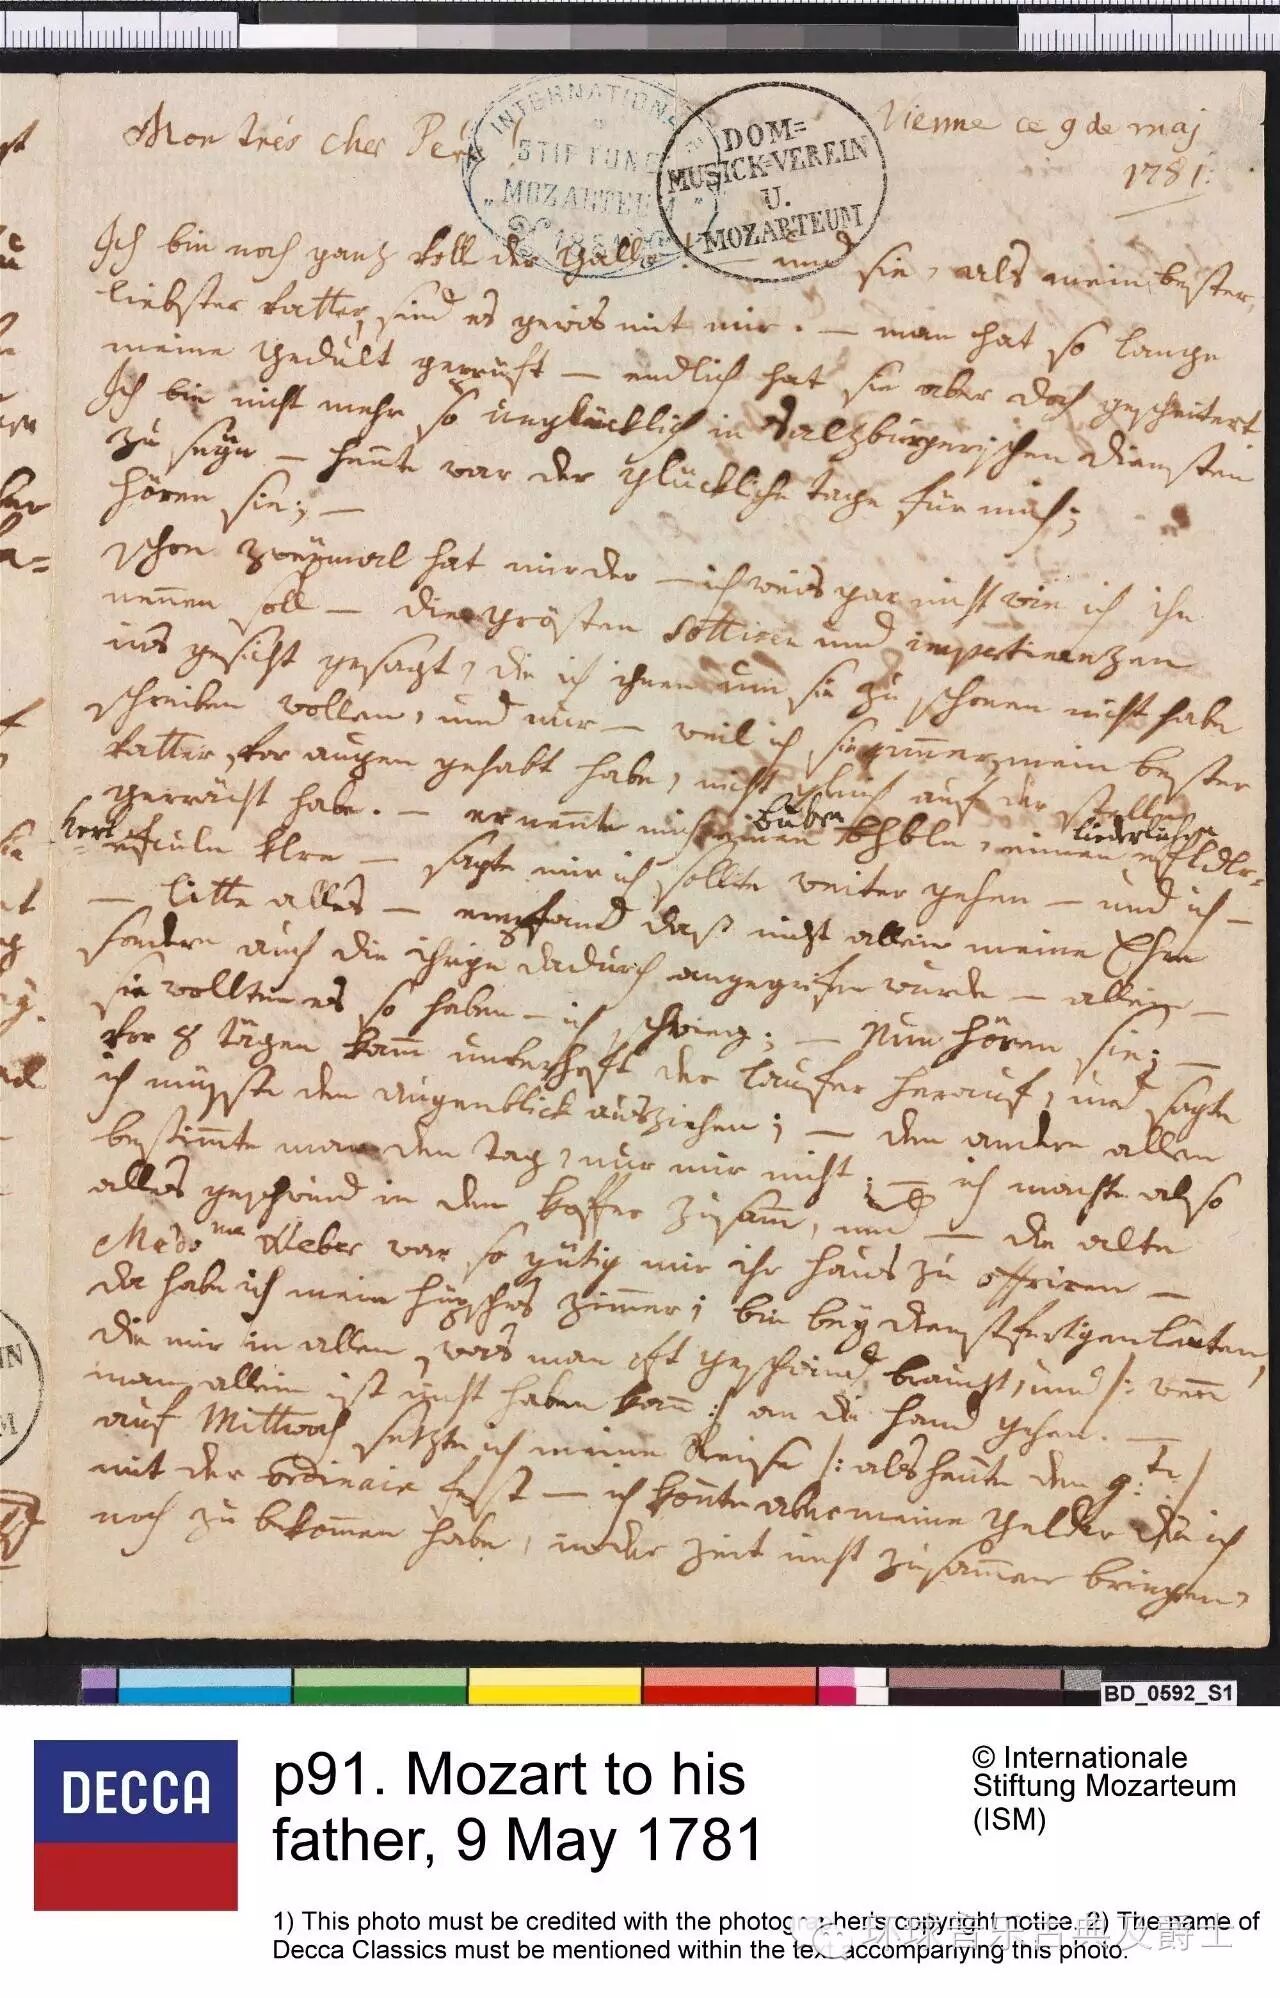 Mon trés cher Pére!
Vienne ce 9 de maj
1781.
INTERNATION
STIFTUNG
„MOZARTEUM“
1881
DOM=
MUSICK-VEREIN
U.
MOZARTEUM
Ich bin noch ganz voll der Galle! — und sie, als mein bester,
liebster vatter, sind es gewis mit mir. — man hat so lange
meine gedult geprüft — endlich hat sie aber doch gescheitert
Ich bin nicht mehr so unglücklich in Salzburgerischen diensten
zu seyn — heute war der glückliche tage für mich;
hören sie; —
schon zweymal hat mir der — ich weis gar nicht wie ich ihn
nennen soll — die grösten sottisen und impertinenzen
ins gesicht gesagt, die ich ihnen um sie zu schonen nicht habe
schreiben wollen, und nur — weil ich sie immer, mein bester
vatter, vor augen gehabt habe, nicht gleich auf der stelle
gerrächt habe. — er nennte mich einen
Buben
liederlichen
Kerl
— sagte mir ich sollte weiter gehen — und ich —
— litte alles — empfand daß nicht allein meine Ehre
sondern auch die ihrige dadurch angegrifen wurde — allein —
sie wollten es so haben — ich schwieg; — Nun hören sie; —
vor 8 tägen kamm unverhoft der laufer herauf, und sagte
ich müsste den augenblick ausziehen; — den andern allen
bestimmte man den tag, nur mir nicht; — ich machte also
alles geschwind in den koffer zusamm, und — die alte
Mad:me Weber war so gütig mir ihr haus zu offriren —
da habe ich mein hüpsches zimmer; bin bey dienstfertigen leuten,
die mir in allen, was man oft geschwind braucht, und |: wenn
man allein ist nicht haben kann :| an die hand gehen. —
auf Mittwoch setzte ich meine Reise |: als heute den 9:te
mit der ordinaire fest — ich konnte aber meine gelder die ich
noch zu bekommen habe, in der zeit nicht zusammen bringen,
BD_0592_S1
DECCA
p91. Mozart to his
father, 9 May 1781
© Internationale
Stiftung Mozarteum
(ISM)
1) This photo must be credited with the photographer's copyright notice. 2) The name of
Decca Classics must be mentioned within the text accompanying this photo.
环球音乐古典及爵士